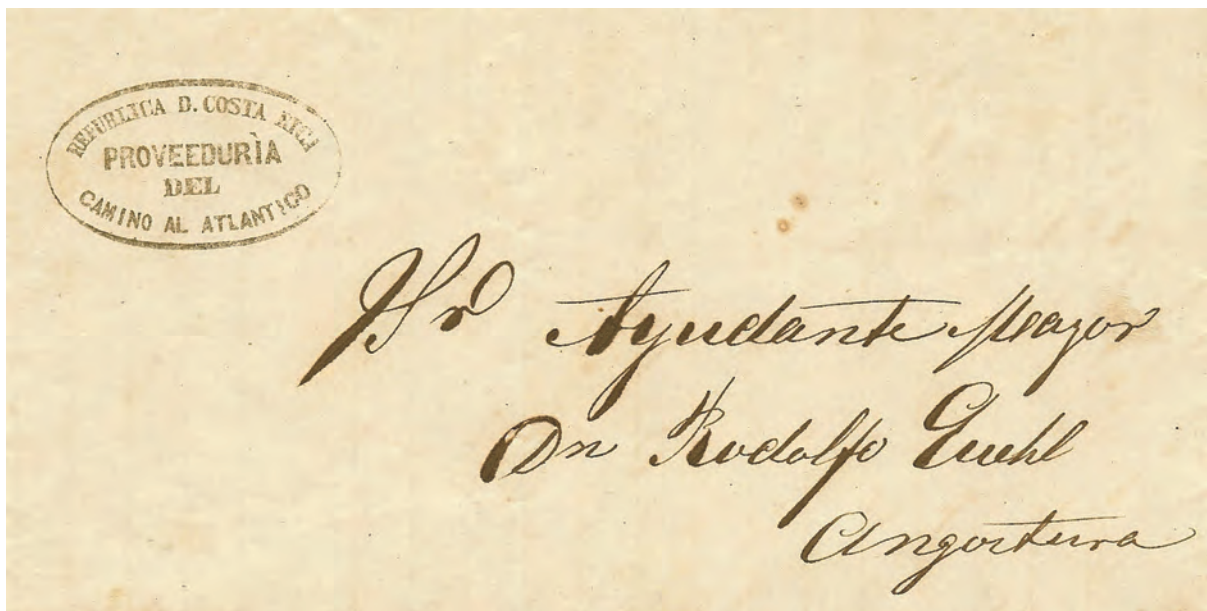 REPUBLICA D. COSTA RICA
PROVEEDURÌA
DEL
CAMINO AL ATLANTICO
Sr Ayudante Mayor
Dn Rodolfo
Angostura